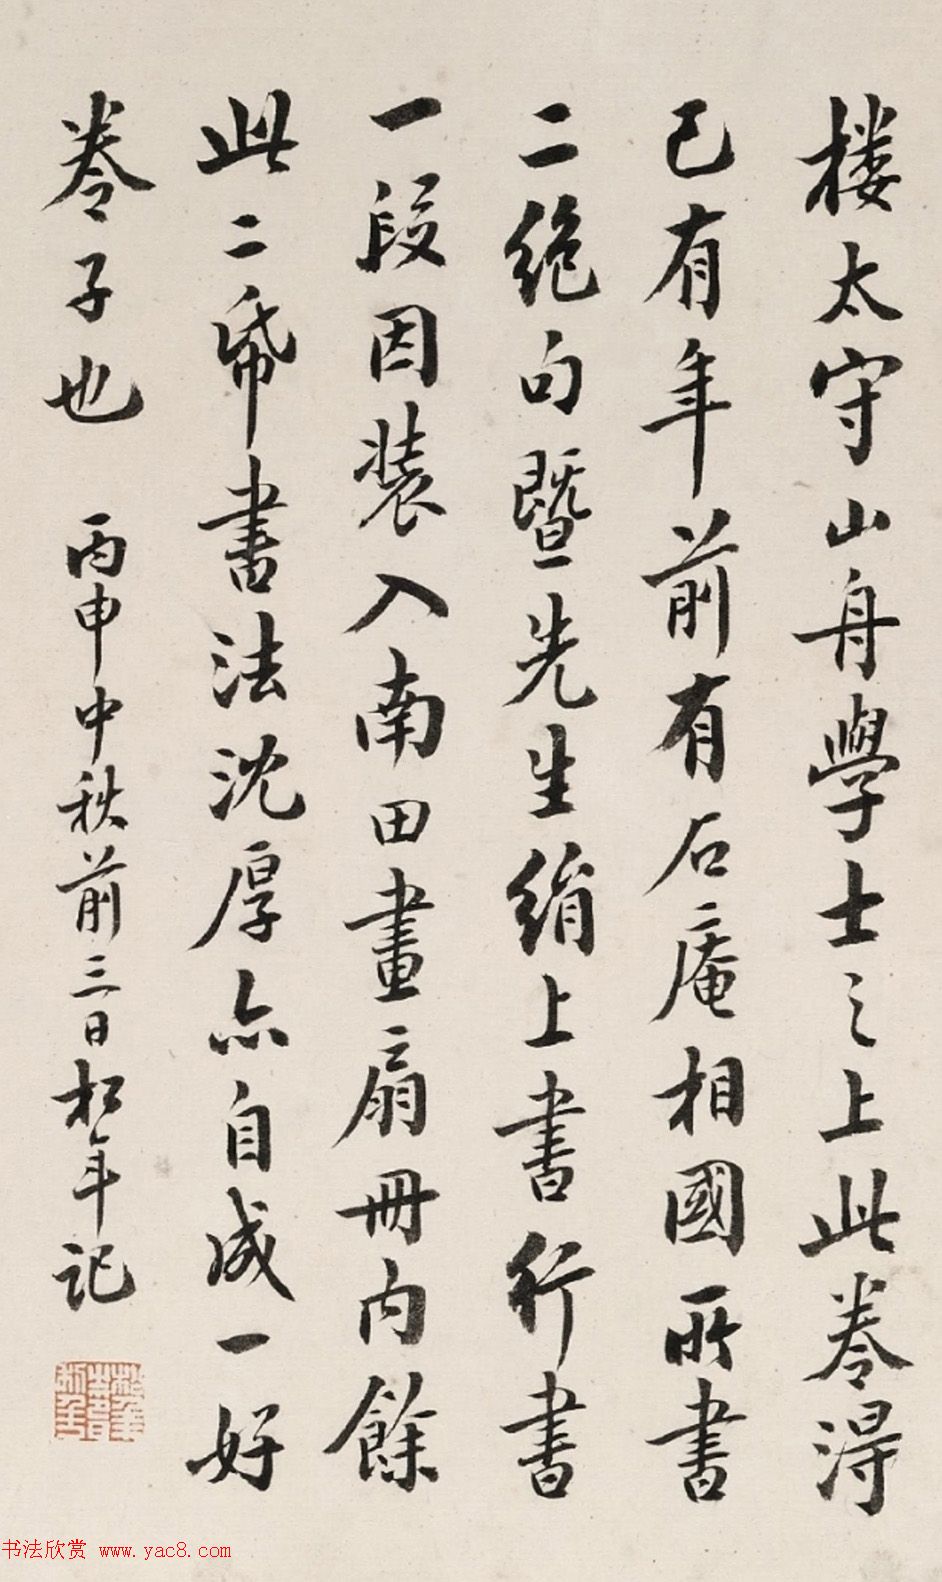 楼太守山舟學士之上此卷淂
已有年前有石庵相國所書
二絶句暨先生絹上書行書
一段因裝入南田畫扇冊内餘
此二帋書法沈厚亦自成一好
卷子也 丙申中秋前三日松年記
书法欣赏 www.yac8.com